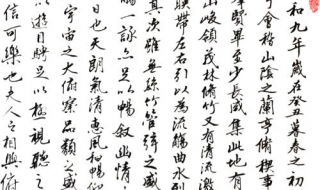 和九年歲在癸丑暮春之初
于會稽山陰之蘭亭脩稧事
羣賢畢至少長咸集此地有
山峻領茂林脩竹又有清流激
暎帶左右引以為流觴曲水列
其次雖無絲竹管弦之盛
觴一詠亦足以暢叙幽情
日也天朗氣清惠風和暢仰
宇宙之大俯察品類之盛
以遊目騁懷足以極視聽之
信可樂也夫人之相與俯